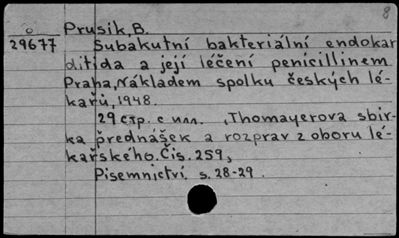 8
Prusik, B.
29677 Subakutní bakteriální endokar
ditida a její léčení penicillinem
Praha, Nákladem spolku českých lé-
kařů, 1948.
29 стр. с илл. , Thomayerova sbír-
ka přednášek a rozprav z oboru lé-
kařského. Čís. 259,
Písemnictví s. 28-29.